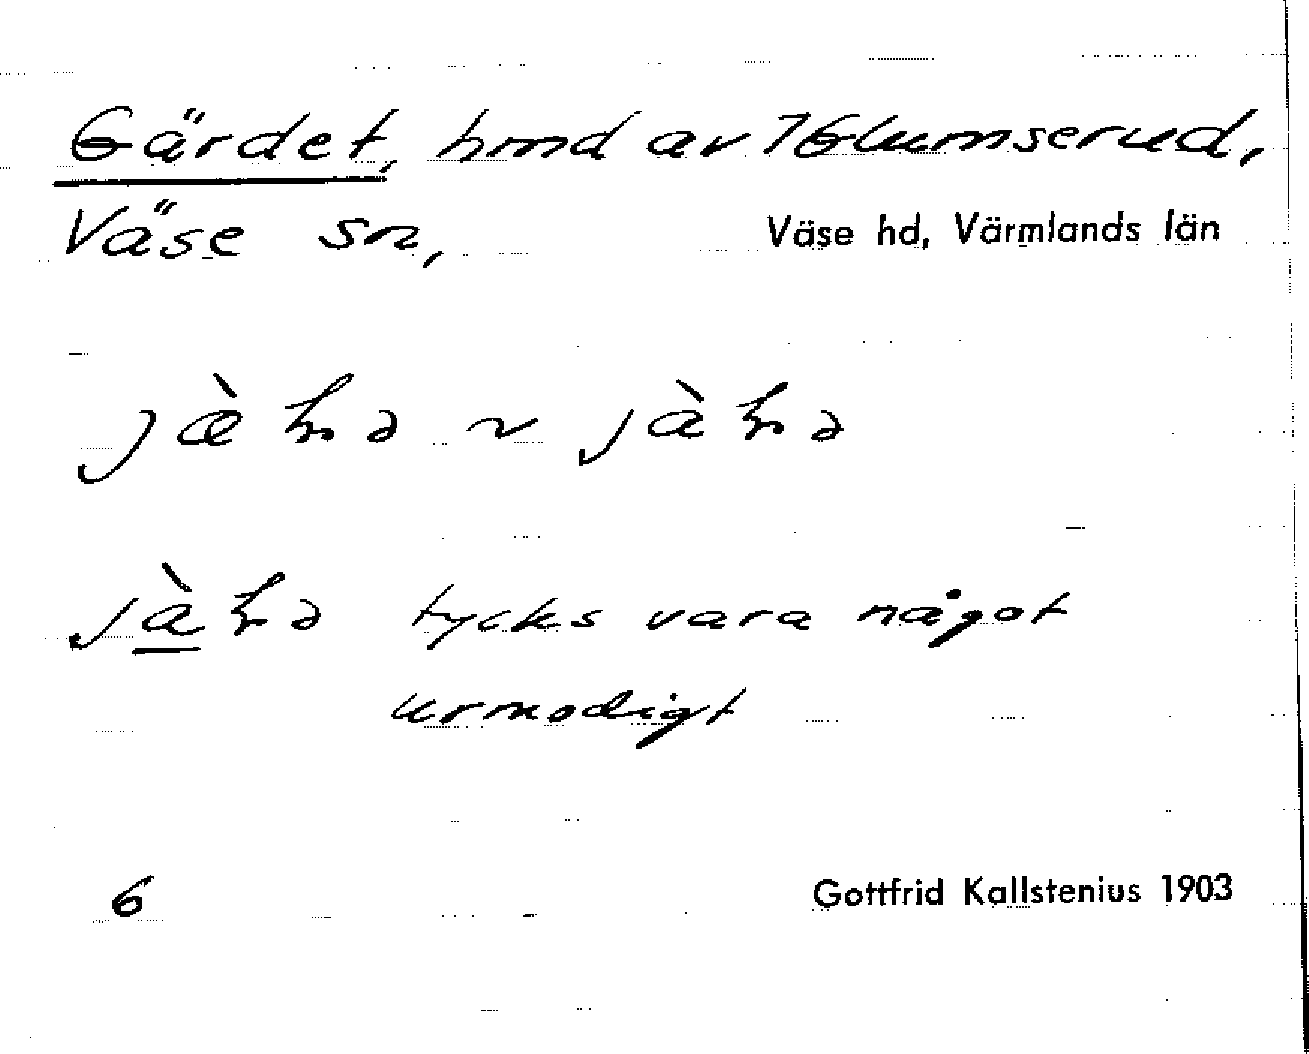 Gärdet, hmd av 1 Glumserud,
Väse sn, Väse hd, Värmlands län
~
tycks vara något
urmodigt
6 Gottfrid Kallstenius 1903